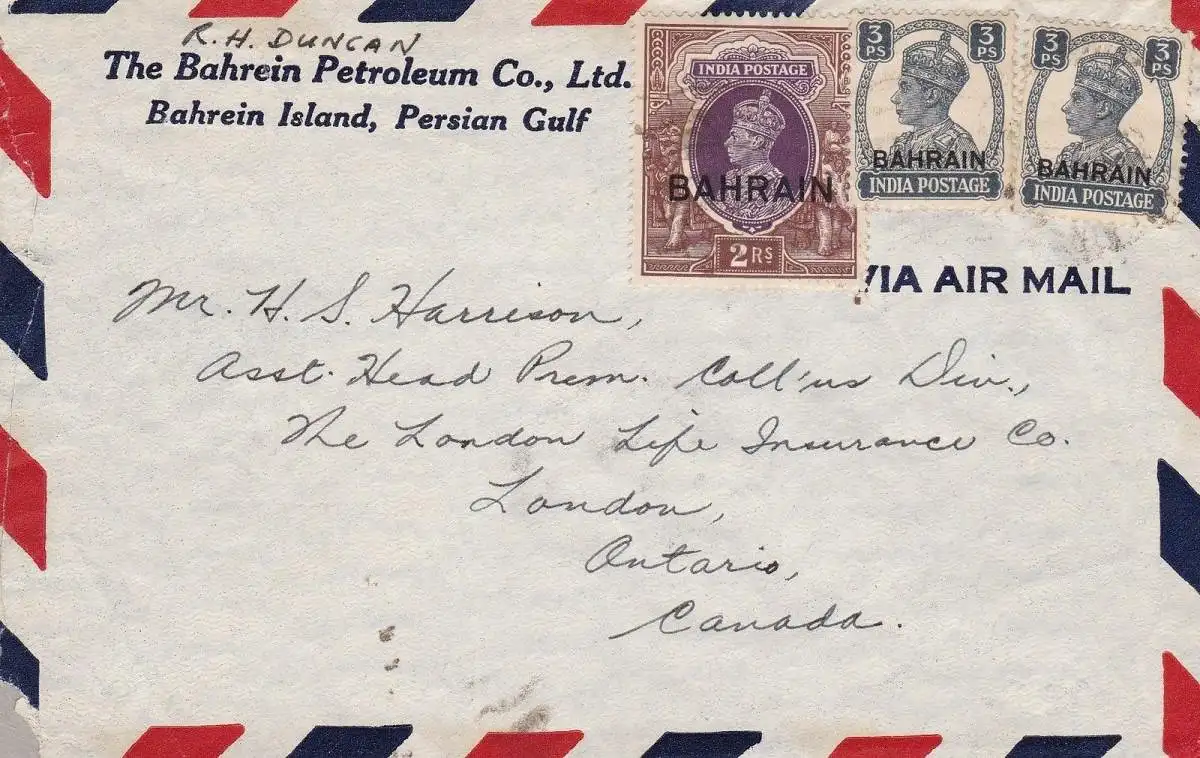 R. H. DUNCAN
The Bahrein Petroleum Co., Ltd.
Bahrein Island, Persian Gulf
INDIA POSTAGE
BAHRAIN
2 RS
3 PS
3 PS
BAHRAIN
INDIA POSTAGE
3 PS
3 PS
BAHRAIN
INDIA POSTAGE
VIA AIR MAIL
Mr. H. S. Harrison,
Asst. Head Prem. Coll'ns Div.,
The London Life Insurance Co.
London,
Ontario,
Canada.